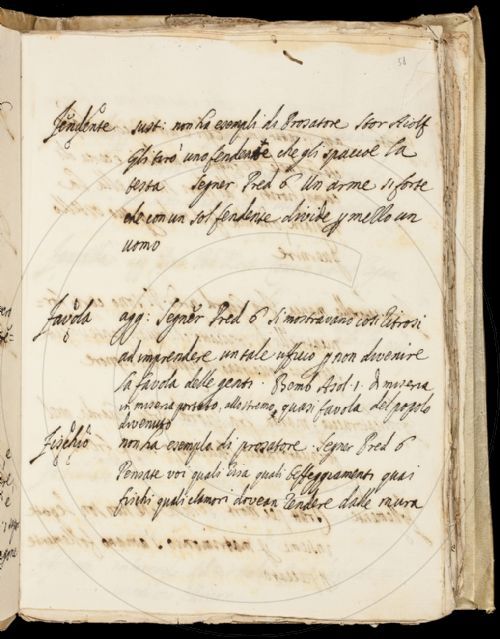 58
Fendente sust: non ha esempli di Prosatore Stor Aiolf
Gli tirò uno fendente che gli spaccoe la
testa Segner Pred 6 Un arme si forte
che con un sol fendente divide p mezzo un
uomo
Favola agg: Segner Pred 6 Si mostravano così ritrosi
ad imprendere un tale ufficio p non divenire
la favola delle genti. Bemb Asol. 1. Di miseria
in miseria portato, allo stremo, quasi favola del popolo
divenuto
Fischio non ha esemplo di prosatore. Segner Pred 6
Pensate voi quali risa quali beffeggiamenti quai
fischi quali clamori dovean rendere dalle mura